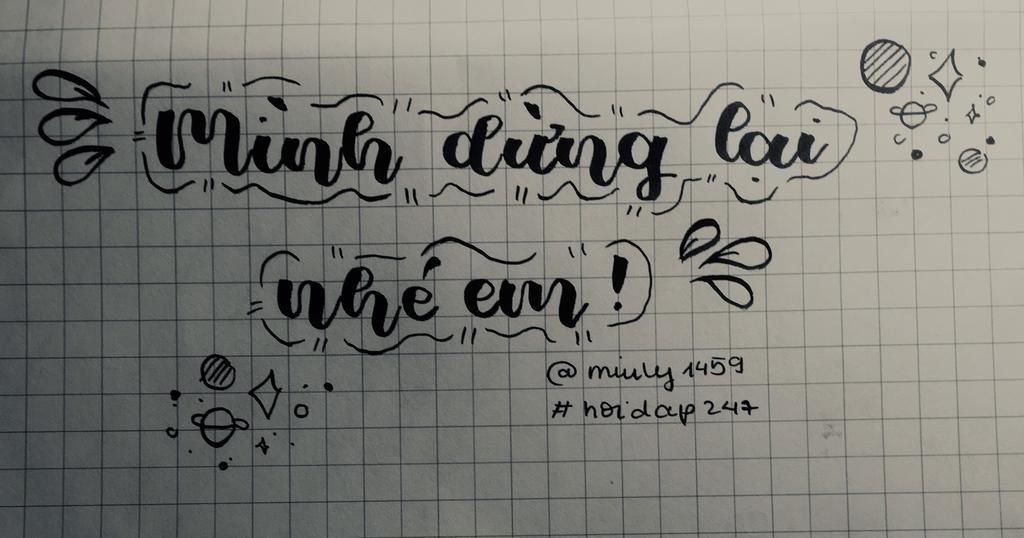 Mình dừng lại
nhé em !
@miuly1459
#hoidap247